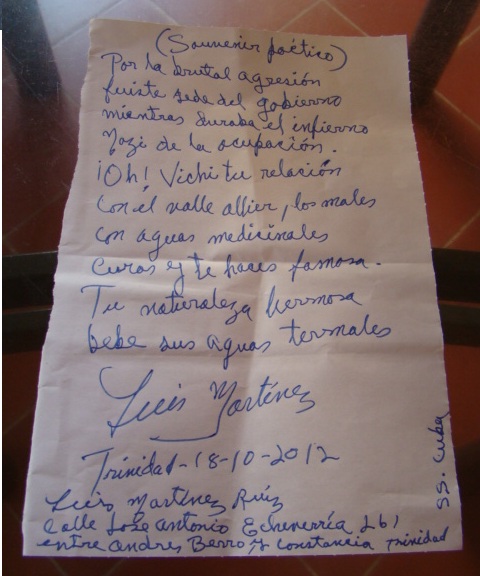 (Souvenir poético)
Por la brutal agresión
fuiste sede del gobierno
mientras duraba el infierno
Nazi de la ocupación.
¡Oh! Vichi tu relación
con el valle allier, los males
con aguas medicinales
curas y te haces famosa.
Tu naturaleza hermosa
bebe sus aguas termales
Luis Martínez
Trinidad-18-10-2012
Luis Martínez Ruíz
Calle José Antonio Echeverría 261
entre Andres Berro y Constancia Trinidad
SS. Cuba